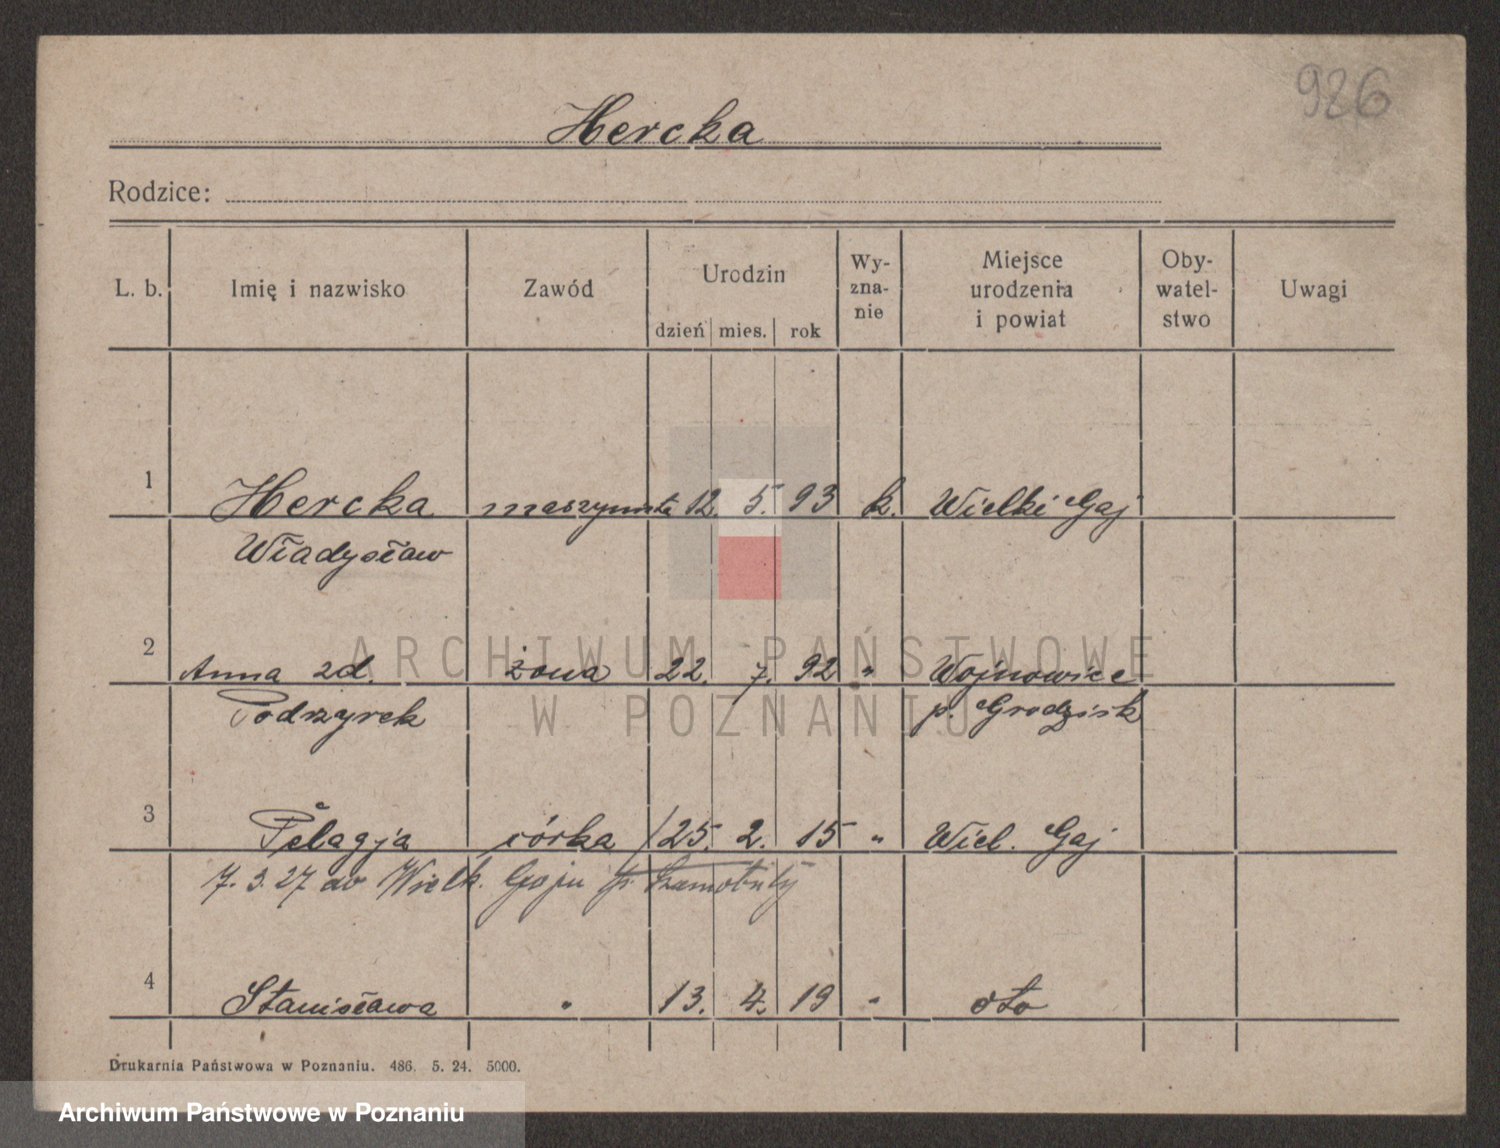 926
Hercka
Rodzice:
L. b. Imię i nazwisko Zawód Urodzin dzień mies. rok Wy-zna-nie Miejsce urodzenia i powiat Oby-watel-stwo Uwagi
1 Hercka maszynista 12. 5. 93 k. Wielki Gaj
Władysław
2 Anna zd. żona 22. 7. 92 " Wojnowice
Podrzyrek p. Grodzisk
3 Pelagja córka 25. 2. 15 " Wiel. Gaj
7. 3. 27 do Wielk. Gaju p. Szamotuły
4 Stanisława " 13. 4. 19 " dto
Drukarnia Państwowa w Poznaniu. 486. 5. 24. 5000.
ARCHIWUM PAŃSTWOWE
W POZNANIU
Archiwum Państwowe w Poznaniu